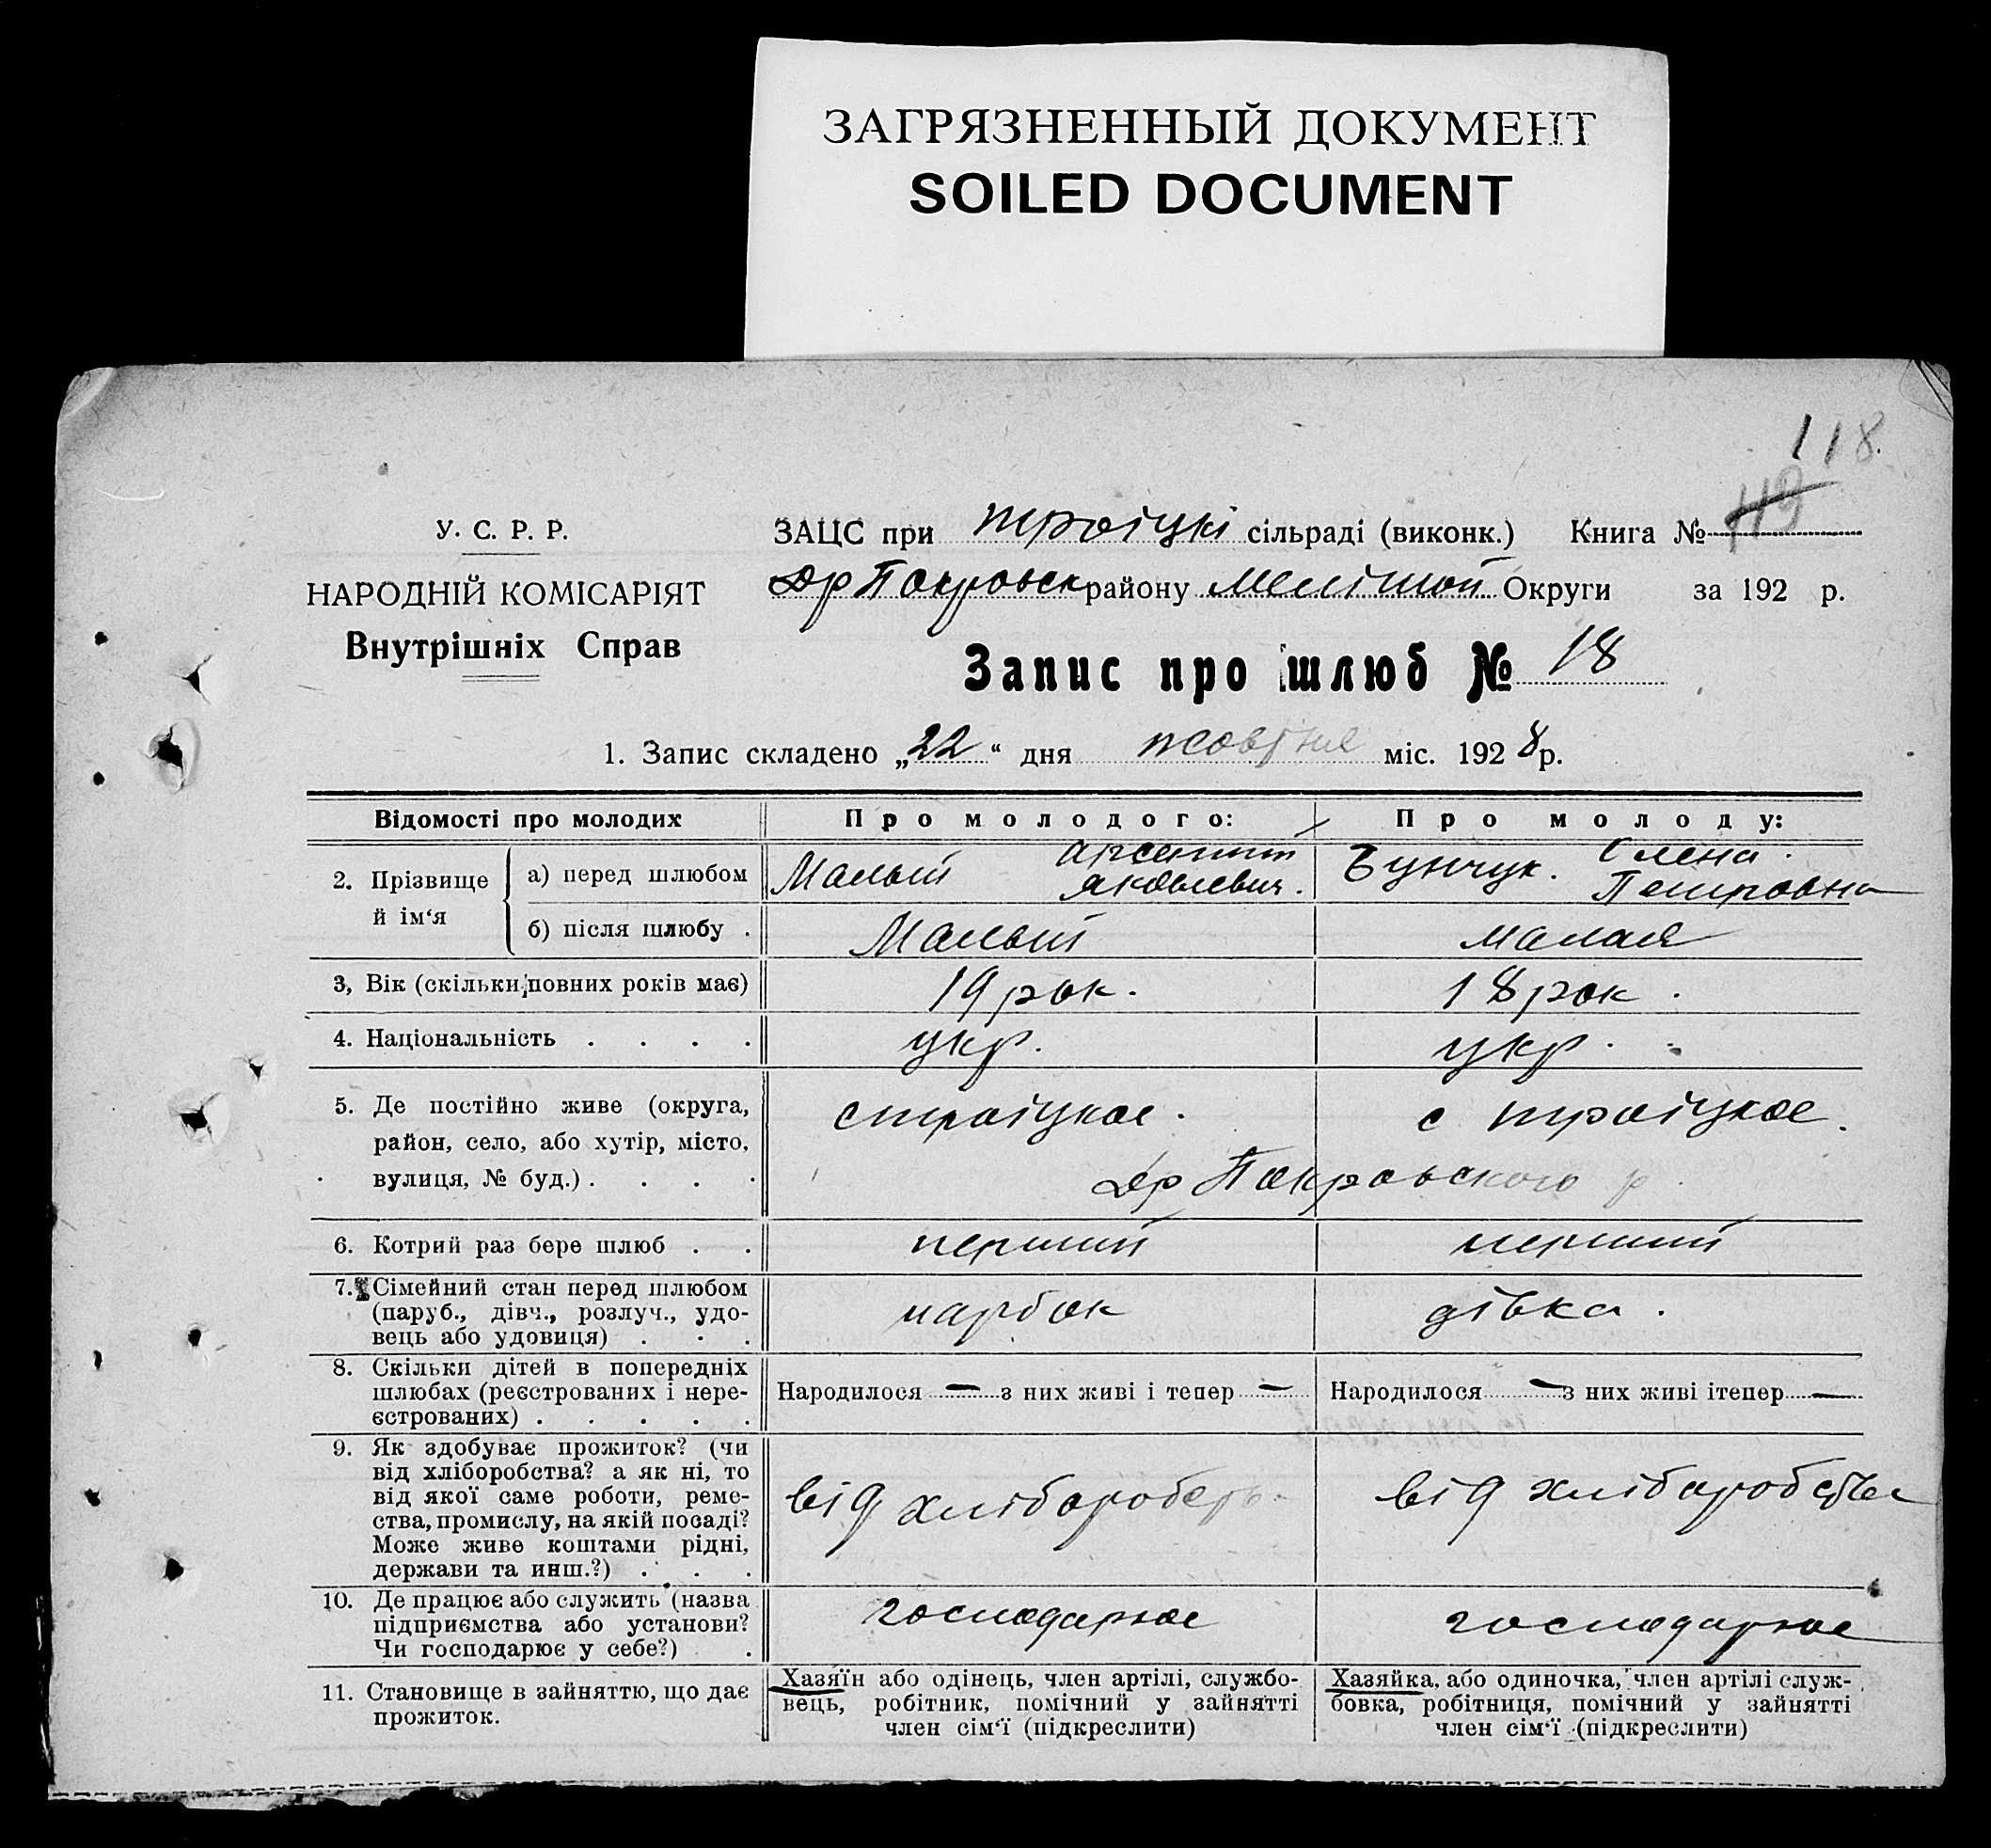 ЗАГРЯЗНЕННЫЙ ДОКУМЕНТ
SOILED DOCUMENT
118.
119
У. С. Р. Р.
НАРОДНІЙ КОМІСАРІЯТ
Внутрішніх Справ
ЗАЦС при троіцкі сільраді (виконк.) Книга №
Др Покровск району Меліт Округи за 192 р.
Запис про шлюб № 18
1. Запис складено „22“ дня жовтня міс. 1928 р.
Відомості про молодих
Про молодого:
Про молоду:
2. Прізвище й ім‘я
а) перед шлюбом
Малый Арсентий Яковлевич.
Бунчук. Олена Петровна
б) після шлюбу .
Малый
Малая
3, Вік (скільки повних років має)
19 рок.
18 рок.
4. Національність . . . .
укр.
укр.
5. Де постійно живе (округа,
район, село, або хутір, місто,
вулиця, № буд.) . . . .
с троіцкое.
с троіцкое.
Др Покровского р
6. Котрий раз бере шлюб . .
перший
перший
7. Сімейний стан перед шлюбом
(паруб., дівч., розлуч., удо-
вець або удовиця) . . .
парбок
дівка.
8. Скільки дітей в попередніх
шлюбах (реєстрованих і нере-
єстрованих) . . . . .
Народилося — з них живі і тепер —
Народилося — з них живі ітепер —
9. Як здобуває прожиток? (чи
від хліборобства? а як ні, то
від якої саме роботи, реме-
ства, промислу, на якій посаді?
Може живе коштами рідні,
держави та инш.?) . . .
від хліборобств
від хліборобства
10. Де працює або служить (назва
підприємства або установи?
Чи господарює у себе?) .
господарює
господарює
11. Становище в зайняттю, що дає
прожиток.
Хазяїн або одінець, член артілі, службо-
вець, робітник, помічний у зайнятті
член сім‘ї (підкреслити)
Хазяйка, або одиночка, член артілі служ-
бовка, робітниця, помічний у зайнятті
член сім‘ї (підкреслити)